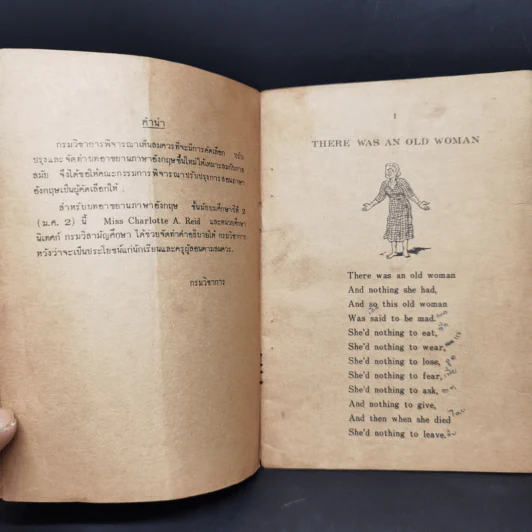 คำนำ
กรมวิชาการพิจารณาเห็นสมควรที่จะมีการคัดเลือก ปรับ
ปรุงและจัดทำบทอาขยานภาษาอังกฤษขึ้นใหม่ให้เหมาะสมกับกาล
สมัย จึงได้ขอให้คณะกรรมการพิจารณาปรับปรุงการสอนภาษา
อังกฤษเป็นผู้คัดเลือกให้
สำหรับบทอาขยานภาษาอังกฤษ ชั้นมัธยมศึกษาปีที่ 2
(ม.ศ. 2) นี้ Miss Charlotte A. Reid และหน่วยศึกษา
นิเทศก์ กรมวิสามัญศึกษา ได้ช่วยจัดทำคำอธิบายให้ กรมวิชาการ
หวังว่าจะเป็นประโยชน์แก่นักเรียนและครูผู้สอนตามสมควร.
กรมวิชาการ
1
THERE WAS AN OLD WOMAN
There was an old woman
And nothing she had,
And so this old woman
Was said to be mad.
She'd nothing to eat,
She'd nothing to wear,
She'd nothing to lose,
She'd nothing to fear,
She'd nothing to ask,
And nothing to give,
And then when she died
She'd nothing to leave.